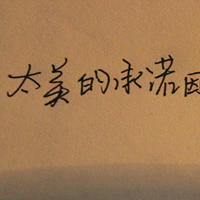 太美的承诺因